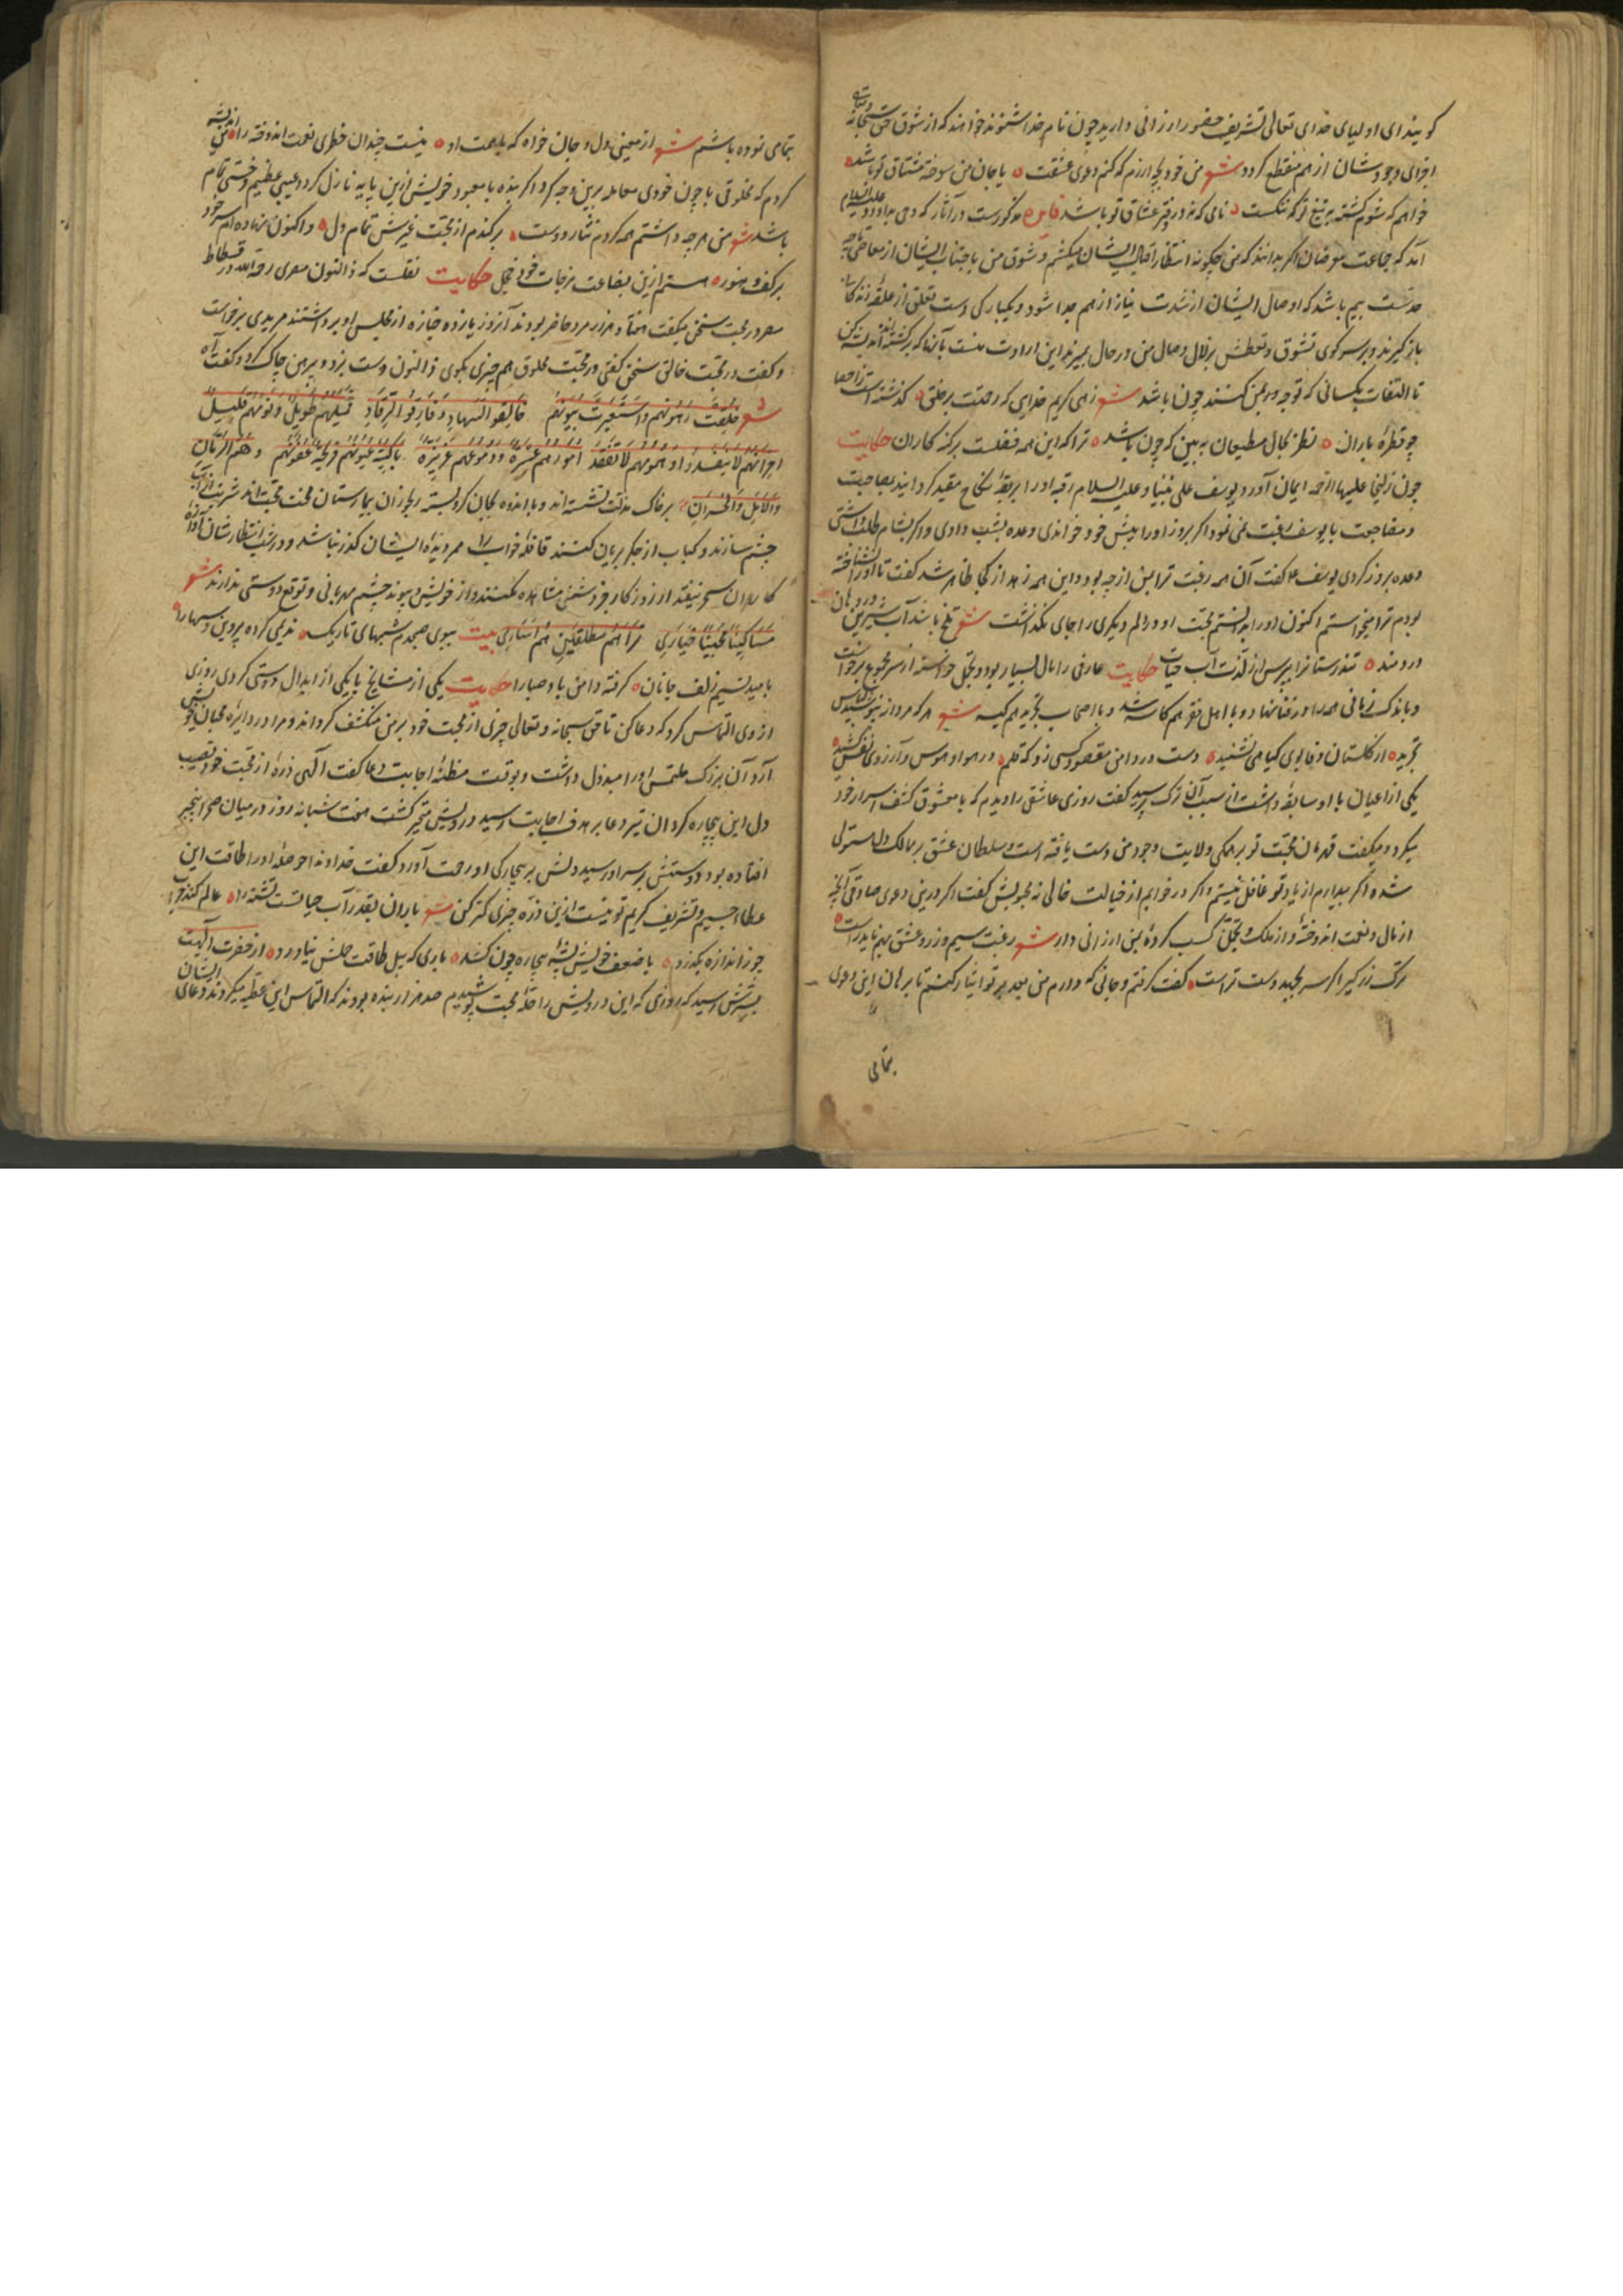 گویند ای اولیای خدای تعالی تشریف حضور ارزانی دارید چون نام خدا شنوند خواهند که از شوق حق سبحانه وتعالی
اجزای وجودشان از هم منقطع گردد شعر من خود بچه ارزم که کنم دعوی عشقت یا جان من سوخته مشتاق تو باشد
خواهم که شوم کشته بر تیغ تو که ننگست نامی که نه در دفتر عشاق تو باشد مذکورست در آثار که وحی بداود علیه السلام
آمد که جماعت معرضان اگر بدانند که من چگونه انتظار اقبال ایشان میکشم و شوق من باجتناب ایشان از معاصی تا چه
حدست بیم باشد که اوصال ایشان از شدت نیاز از هم جدا شود و یکبارگی دست تعلق از علقه
بازگیرند و بر سر کوی تشوق و تعطش بزلال وصال من در حال بمیرند این ارادت منست بآنها که برگشته اند اندیشه کن
تا التفات بکسانی که توجه بمن کنند چون باشد شعر زهی کریم خدایی که رحمتت بر خلق گذشته است ز احصا
چو قطرهٔ باران نظر بحال مطیعان ببین که چون باشد ترا که این همه فضلت بر گنه کاران حکایت
چون زلیخا علیها الرحمه ایمان آورد و یوسف علی نبینا و علیه السلام رقبه او را بربقهٔ نکاح مقید گردانید بمصاحبت
و مضاجعت با یوسف رغبت نمی نمود اگر بروز او را پیش خود خواندی وعده بشب دادی و اگر بشام طلب داشتی
وعده بروز کردی یوسف ع گفت آن همه رغبت ترا بمن از چه بود و این همه زهد از کجا ظاهر شد گفت تا او را نشناخته
بودم ترا میخواستم اکنون او را بدانستم محبت او در دلم دیگری را جای نگذاشت شعر تلخ باشد آب شیرین در دهان
دردمند تندرستانرا بپرس از لذت آب حیات حکایت عارفی را مال بسیار بود و تجمل خواسته از سر مجموع برخاست
و باندک زمانی همه را در فنا نهاد و با اهل فقر هم کاسه شد و با اصحاب تجرید هم کیسه شعر هر که مردانه نپوشید لباس
تجرید از گلستان وفا بوی گیا می نشنید دست در دامن مقصود کسی زد که قلم در هوا و هوس و آرزوی نفس کشید
یکی از اعیان با او سابقهٔ داشت از سبب آن ترک پرسید گفت روزی عاشقی را دیدم که با معشوق کشف اسرار خود
میکرد و میگفت قهرمان محبت تو بر همگی ولایت وجود من دست یافته است و سلطان عشق بر ممالک دل مستولی
شده اگر بیدارم از یاد تو غافل نیستم و اگر در خوابم از خیالت خالی نه محبوبش گفت اگر درین دعوی صادقی آنچه
از مال و نعمت اندوختهٔ و از ملک و تجمل کسب کردهٔ بمن ارزانی دار شعر رغبت سیم و زر و عشق بهم ناید راست
ترک زر گیر اگر سر بمحبت دست تراست گفت گرفتم و جانی که دارم من بعد بر تو ایثار کنم تا برهان این دعوی
بتمامی
بتمامی نموده باشم شعر از معنی دل و جان خواه که با همت او نیست چندان خطری نعمت اندوخته را اندیشه
کردم که مخلوقی با چون خودی معامله برین وجه کرد اگر بنده با معبود خویش ازین پایه نازل گردد عیبی عظیم و خستی تمام
باشد شعر من هر چه داشتم همه کردم نثار دوست برکندم از محبت غیرش تمام دل و اکنون نهاده ام سر خود
بر کف و هنوز هستم ازین بضاعت مزجات خود خجل حکایت نقلست که ذا النون مصری رحمه الله در فسطاط
مصر در محبت سخنی میگفت هفتاد هزار مرد حاضر بودند آنروز یازده جنازه از مجلس او برداشتند مریدی برخاست
و گفت در محبت خالق سخن گفتی در محبت مخلوق هم چیزی بگوی ذا النون دست بزد و پیرهن چاک کرد و گفت آه
شعر غلقت رهونهم واستعبرت عیونهم خالفوا السهاد وفارقوا الرقاد لیلهم طویل ونومهم قلیل
احزانهم لا تنفد وهمومهم لا تفقد امورهم عسرة ودموعهم غزیرة باکیة عیونهم قریحة جفونهم وهم الزمان
والاهل والجیران بر خاک مذلت نشسته اند و با اندوه بجان کرو بسته رنجوران بیمارستان محنت محبت اند شربت از آب
چشم سازند و کباب از جگر بریان کنند قافلهٔ خواب را ممر دیدهٔ ایشان گذر نباشد و در شب انتظارشان آوازهٔ
کاروان سحر نیفتد از روزگار جز دشمنی مشاهده نکنند و از خویش و پیوند چشم مهربانی و توقع دوستی ندارند شعر
مساکینا محبینا حیاری تراهم مطلقین هم اساری بیت ببوی صبحدم شبهای تاریک ندیمی کرده پروین و سها را
بامید نسیم زلف جانان گرفته دامن باد صبا را حکایت یکی از مشایخ با یکی از ابدال دوستی کردی روزی
از وی التماس کرد که دعا کن تا حق سبحانه و تعالی چیزی از محبت خود بر من منکشف گرداند و مرا در دایرهٔ محبان خویش
آرد آن بزرگ ملتمس او را مبذول داشت و بوقت مظنهٔ اجابت دعا گفت الهی ذرهٔ از محبت خود نصیب
دل این بیچاره گردان تیر دعا بر هدف اجابت رسید درویش متحیر گشت هفت شبانه روز در میان صحرا متحیر
افتاده بود دوستش بر سر او رسید دلش بر بیچارگی او رحمت آورد گفت خداوندا حوصلهٔ او را طاقت این
عطای جسیم و تشریف کریم تو نیست ازین ذره چیزی کمتر کن شعر باران بقدر آب حیاتست تشنه را عالم کند خراب
چو ز اندازه بگذرد با ضعف خویش پشهٔ بیچاره چون کشد باری که پیل طاقت حملش نیاورد از حضرت الهیت
بسرش رسید که روزی که این درویش را حلهٔ محبت پوشیدم صد هزار بنده بودند که التماس این عطیه میکردند دعای ایشان